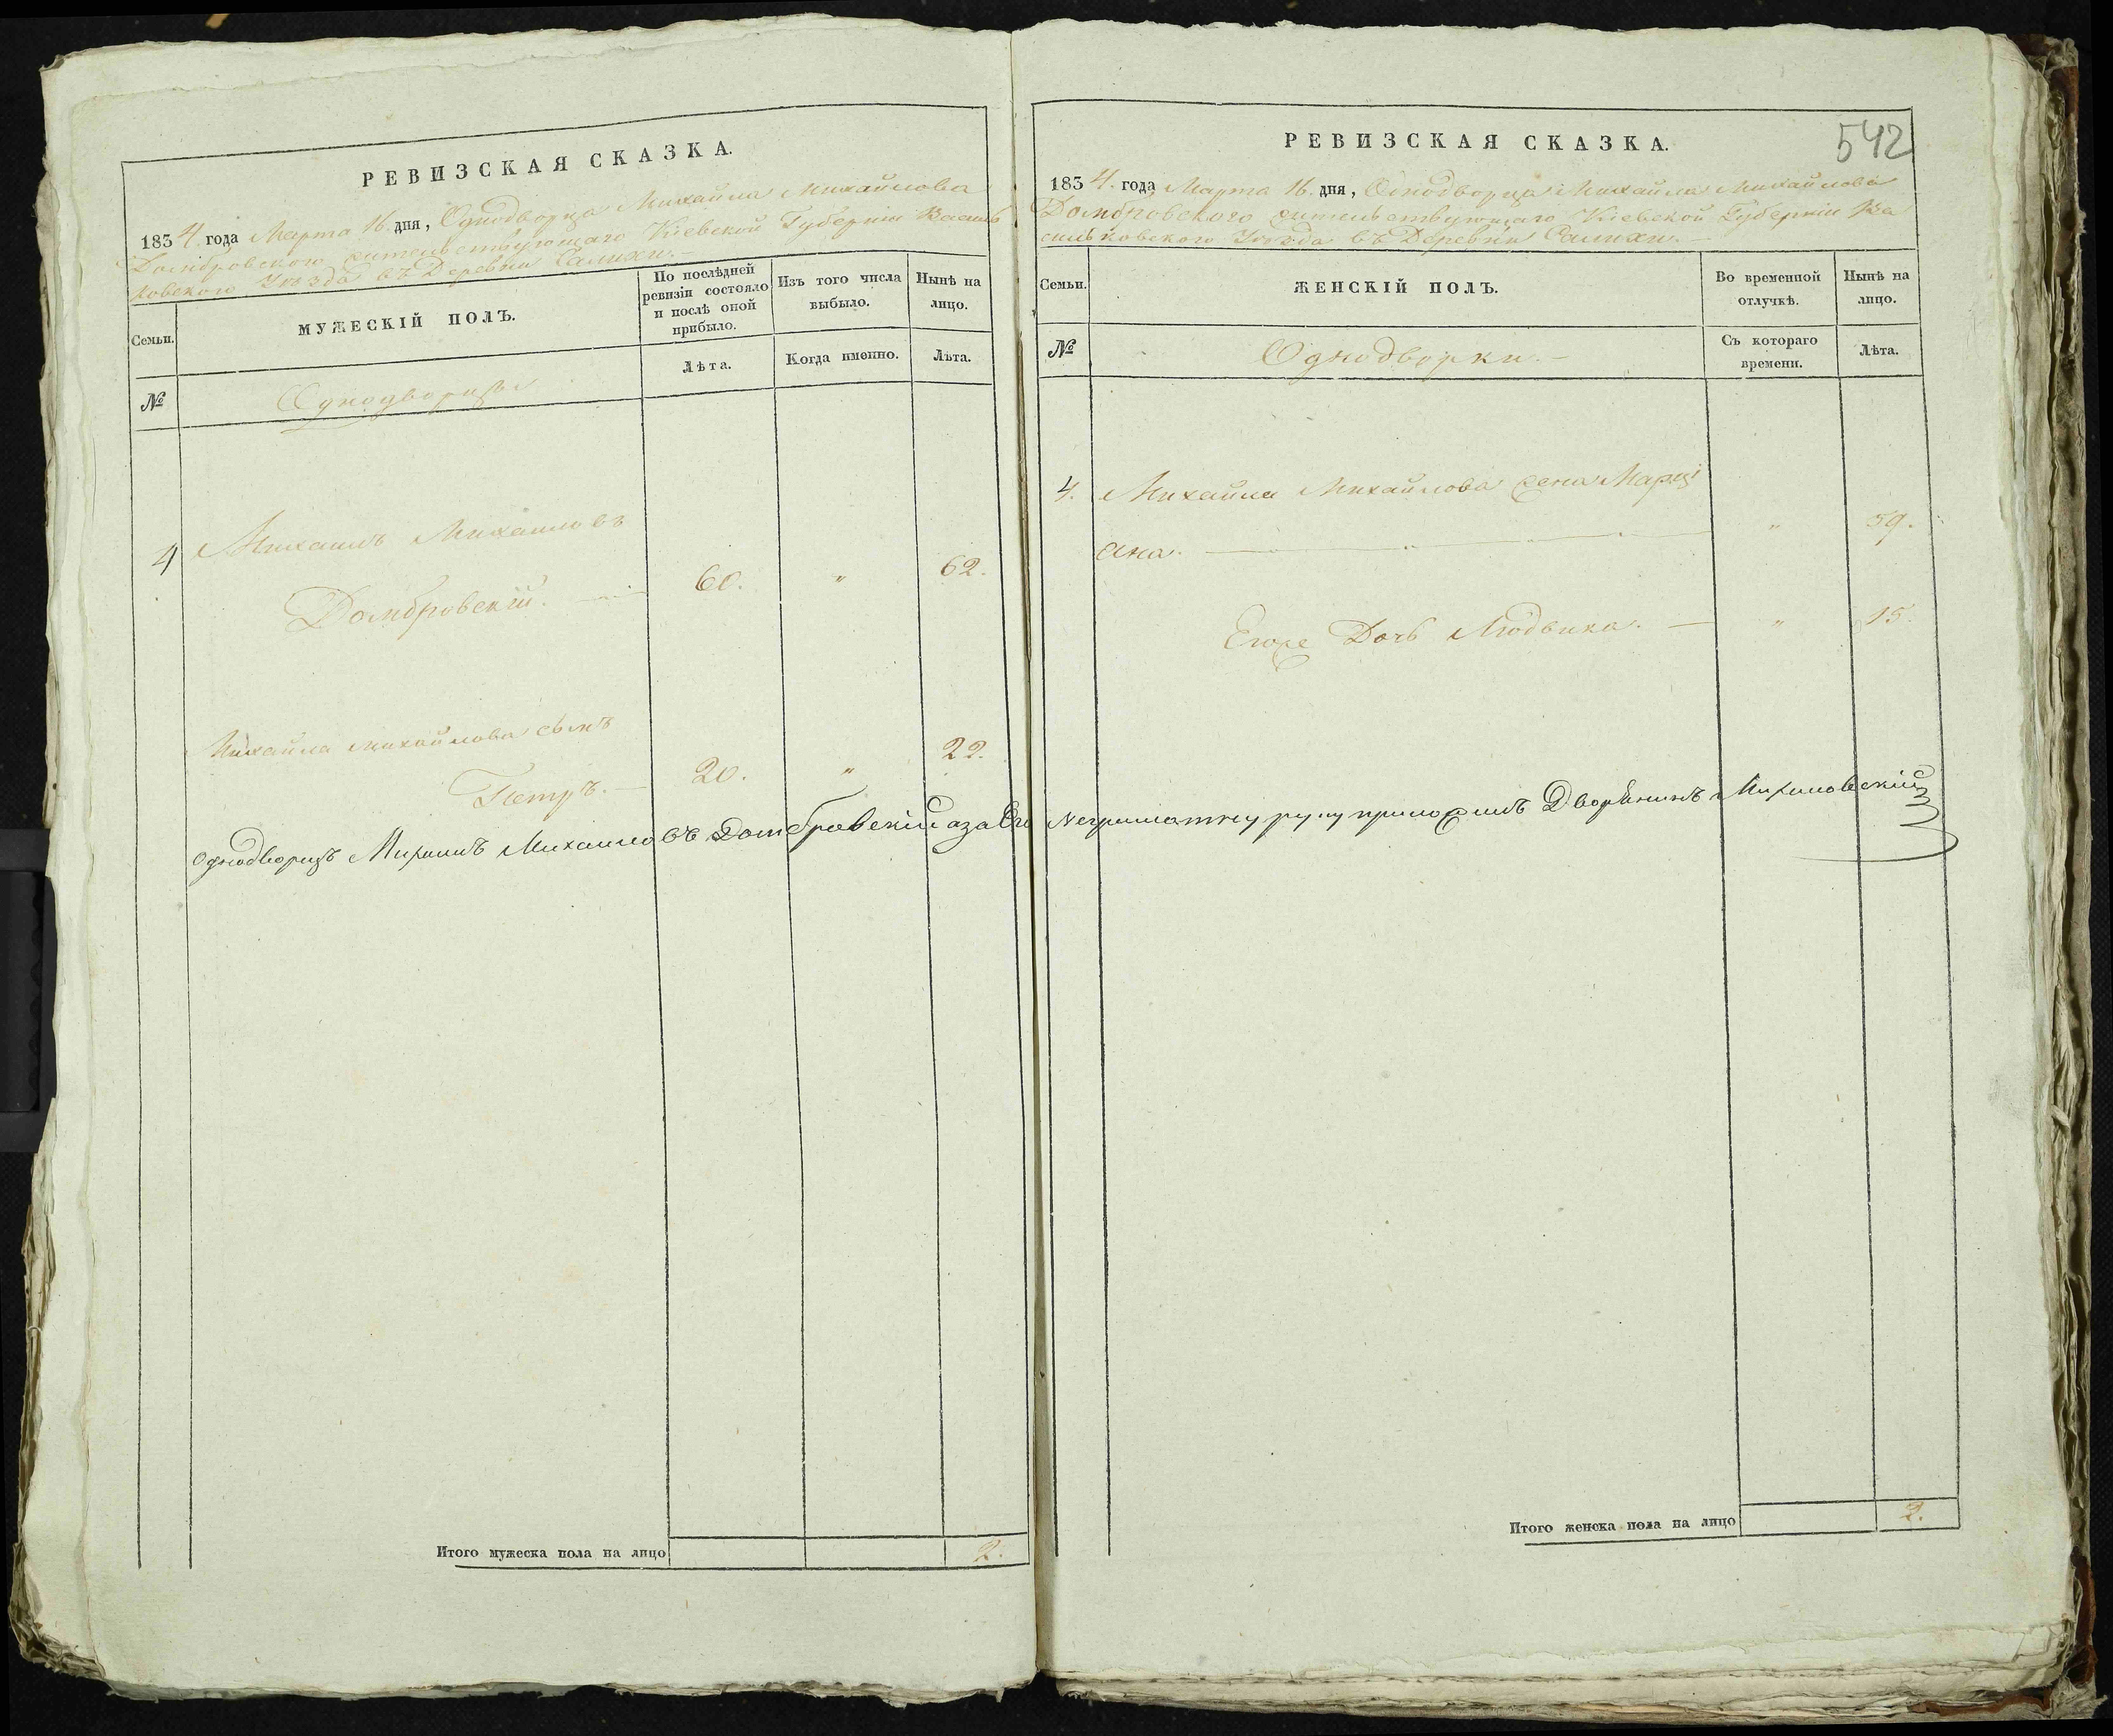 РЕВИЗСКАЯ СКАЗКА.
1834. года Марта 16. дня, Однодворца Михайла Михайлова
Домбровского жительствующаго Кіевской Губерніи Василь
ковского Уезда въ Деревни Салихи.
Семьи.
МУЖЕСКІЙ ПОЛЪ.
По послѣдней
ревизіи состояло
и послѣ оной
прибыло.
Изъ того числа
выбыло.
Нынѣ на
лицо.
№
Однодворцы
Лѣта.
Когда именно.
Лѣта.
4
Михаилъ Михаиловъ
Домбровскій. 60. " 62.
Михайла Михайлова сынъ
Петръ. 20. " 22.
Однодворецъ Михаилъ Михаиловъ Домбровскій а за Его
Итого мужеска пола на лицо 2.
542
РЕВИЗСКАЯ СКАЗКА.
1834. года Марта 16. дня, Однодворца Михайла Михайлова
Домбровского жительствующаго Кіевской Губерніи Ва
сильковского Уезда въ Деревни Салихи.
Семьи.
ЖЕНСКІЙ ПОЛЪ.
Во временной
отлучкѣ.
Нынѣ на
лицо.
№
Однодворки.
Съ котораго
времени.
Лѣта.
4. Михайла Михайлова жена Марці
ана. " 59.
Егоже Дочь Людвика. " 15.
Неграматну руку приложилъ Дворянинъ
Итого женска пола на лицо 2.